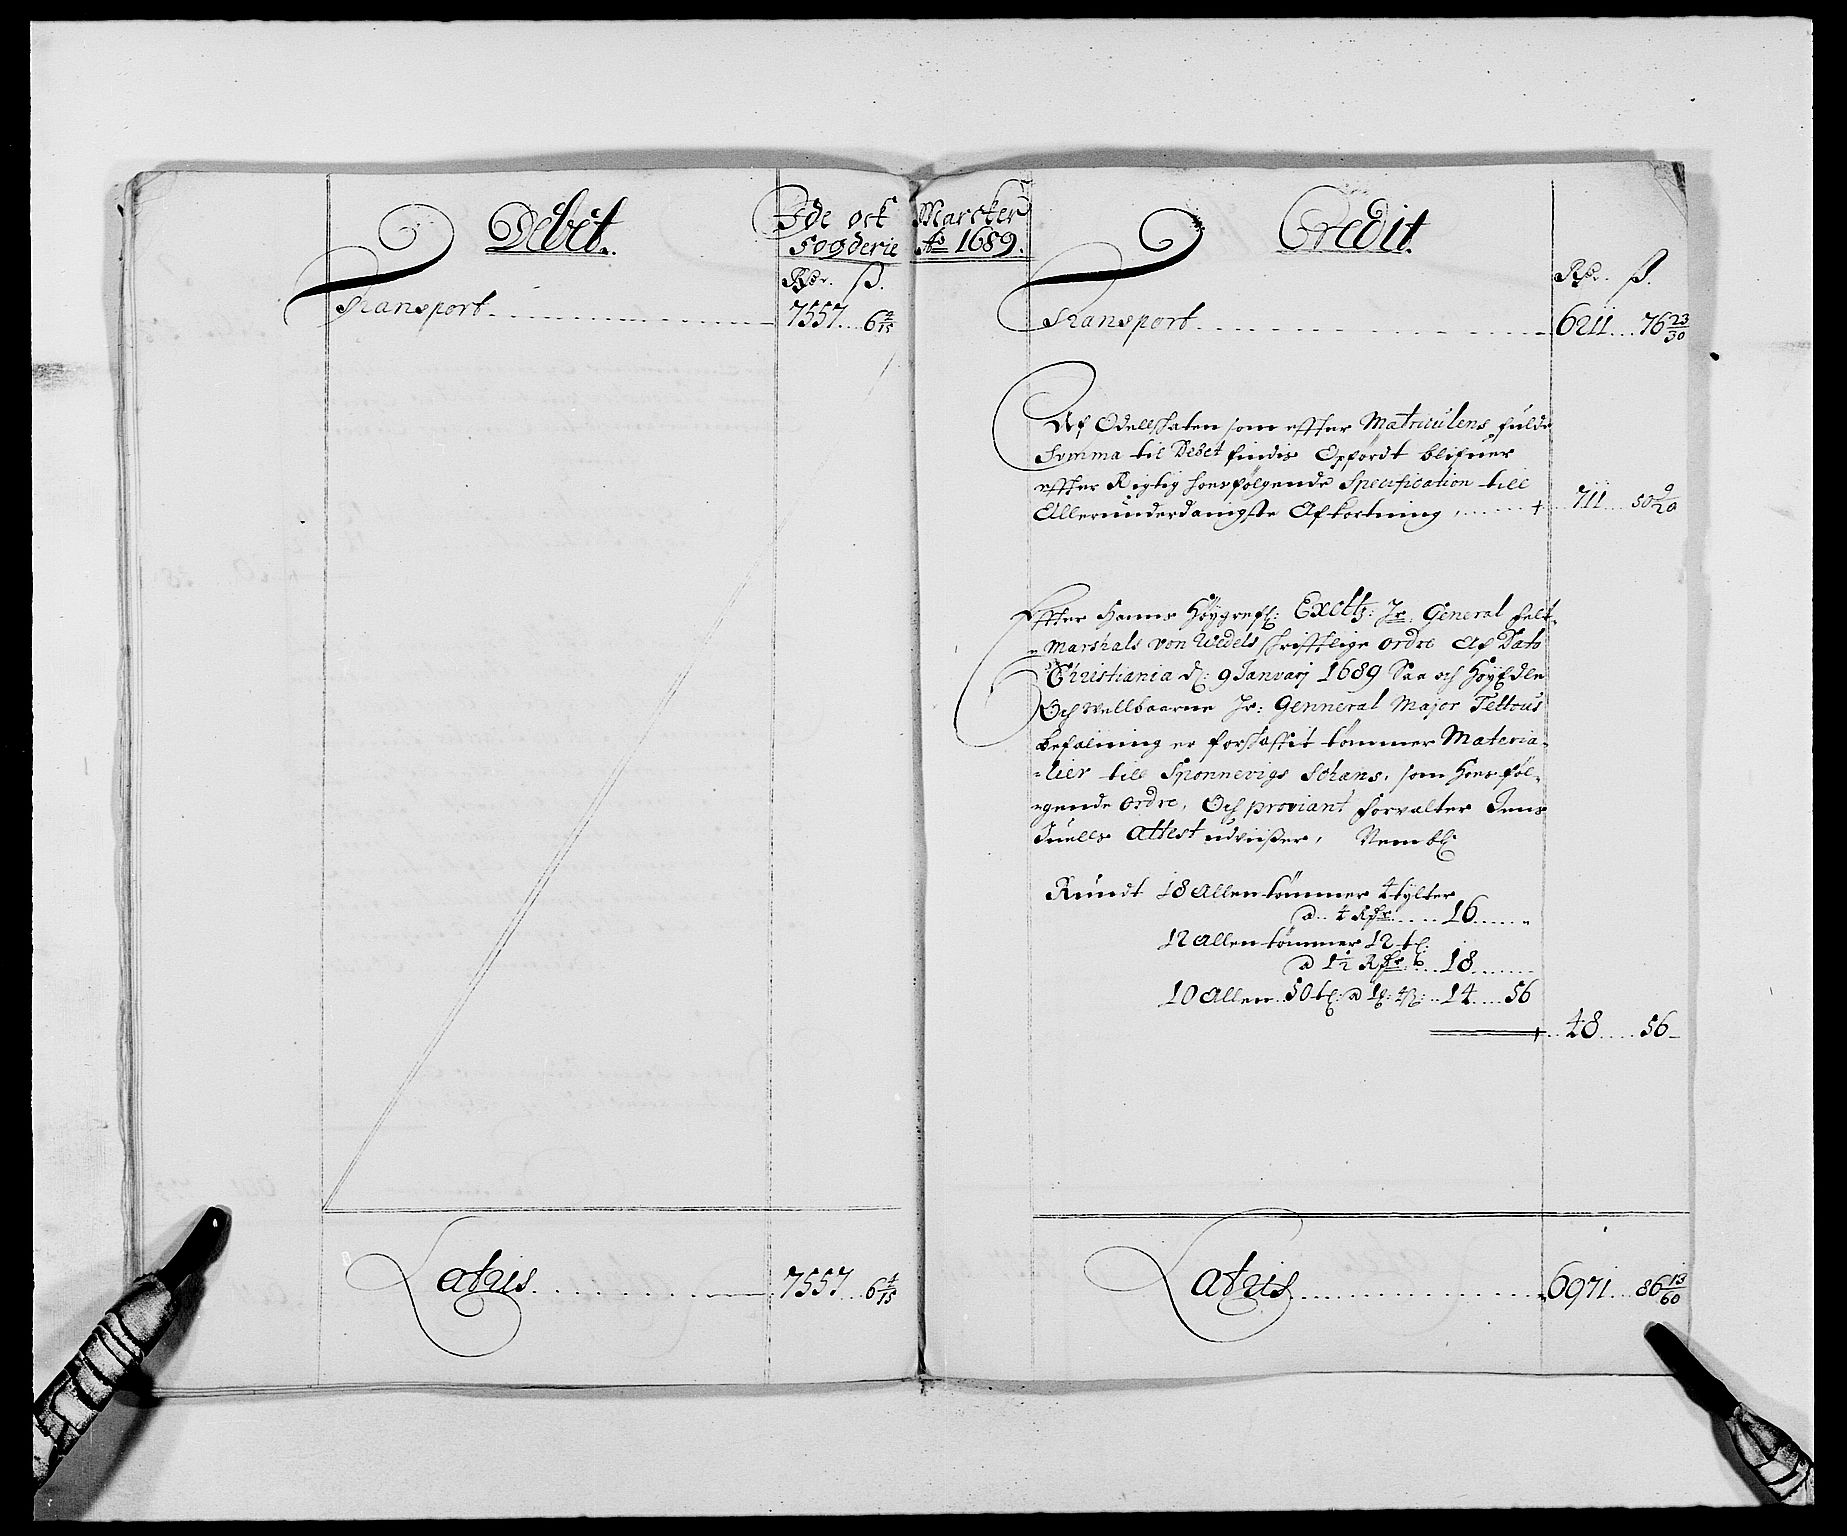 Debet.
Ide ock
fogderie
Rdr. ß.
Transport 7557 6 2/15
Latus 7557 6 2/15
Marcker
Ao 1689.
Credit.
Rdr. ß.
Transport 6211 76 23/30
Af Odellskaten som effter Matriculens fulde
Summa til Debet findis Opfördt blifuer
effter Rigtig hosfölgende Specification till
Allerunderdanigste Afkortning + 711 50 9/20
Effter Hanns Höygrefl: Excellz: Hr. General Felt-
Marshals von Wedels skrifftlige ordre Af Dato
Christiania d: 9 Januarj 1689 Saa och HöyEdle
Och Wellbaarne Hr: Genneral Major Tettous
befalning er forskaffit tömmer Materia-
-lier till Sponnevigs Schans, som hos föl-
-gende ordre, Och proviant forvalter Jens
Juells Attest udviiszer, Nembl:
Rundt 18 Allen tömmer 4 tylter
a 4 Rdr 16
12 Allen tömmer 12 tl:
a 1 1/2 Rdr 18
10 Allen 50 tl: a 1 4 ß: 14 56
+ 48 56
Latus 6971 86 13/60